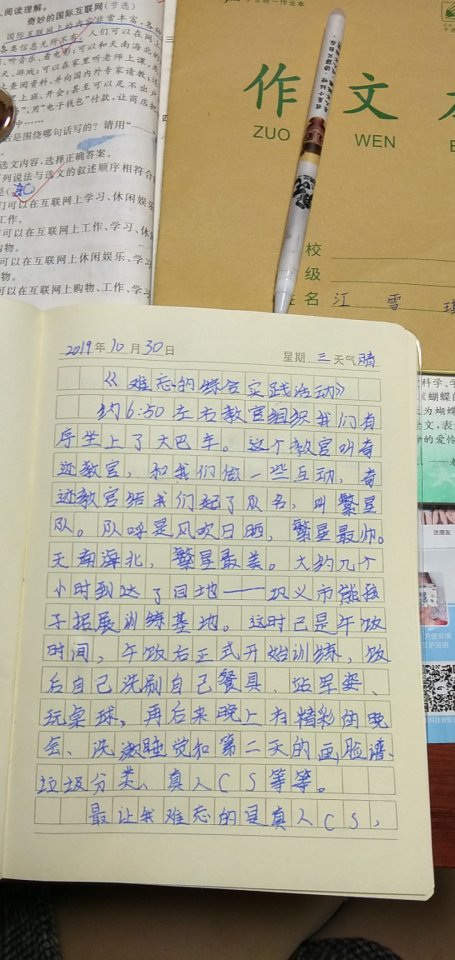 入阅读理解。
奇妙的国际互联网(节选)
国际互联网上的内容非常丰富,各种
各类信息无所不有。人们可以在网上
、听音乐、看电影;可以和天南海北的
天、游戏;可以在家里听老师上课,
上查阅资料,并向国内外专家请教;
用"电子钱包"付款,让商店把
话是围绕哪句话写的?请用"
选文内容,选择正确答案。
列说法与选文的叙述顺序相符合
们可以在互联网上学习、休闲娱乐
工作。
可以在互联网上工作、学习、休
购物。
可以在互联网上休闲娱乐、学习
可以在互联网上购物、工作、学习
作文
ZUO WEN
校
级
姓名 江雪
2019年10月30日 星期三天气晴
《难忘的综合实践活动》
约6:50左右教官组织我们有
序坐上了大巴车。这个教官叫奇
迹教官,和我们做一些互动,奇
迹教官给我们起了队名,叫繁星
队。队呼是风吹日晒,繁星最帅。
天南海北,繁星最美。大约几个
小时到达了目地——巩义市熊孩
子拓展训练基地。这时已是午饭
时间,午饭后正式开始训练,饭
后自己洗刷自己餐具、站军姿、
玩桌球,再后来晚上有精彩的晚
会、洗漱睡觉和第二天的画脸谱、
垃圾分类、真人CS等等。
最让我难忘的是真人CS,